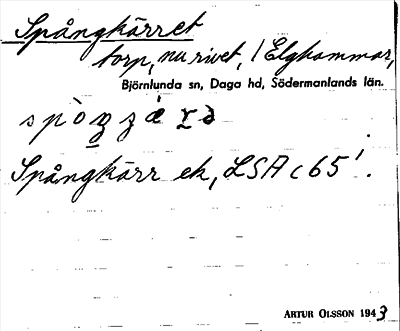 Spångkärret
torp, nu rivet, / Elghammar,
Björnlunda sn, Daga hd, Södermanlands län.
Spångkärr ek, LSA c 65¹.
ARTUR OLSSON 1943